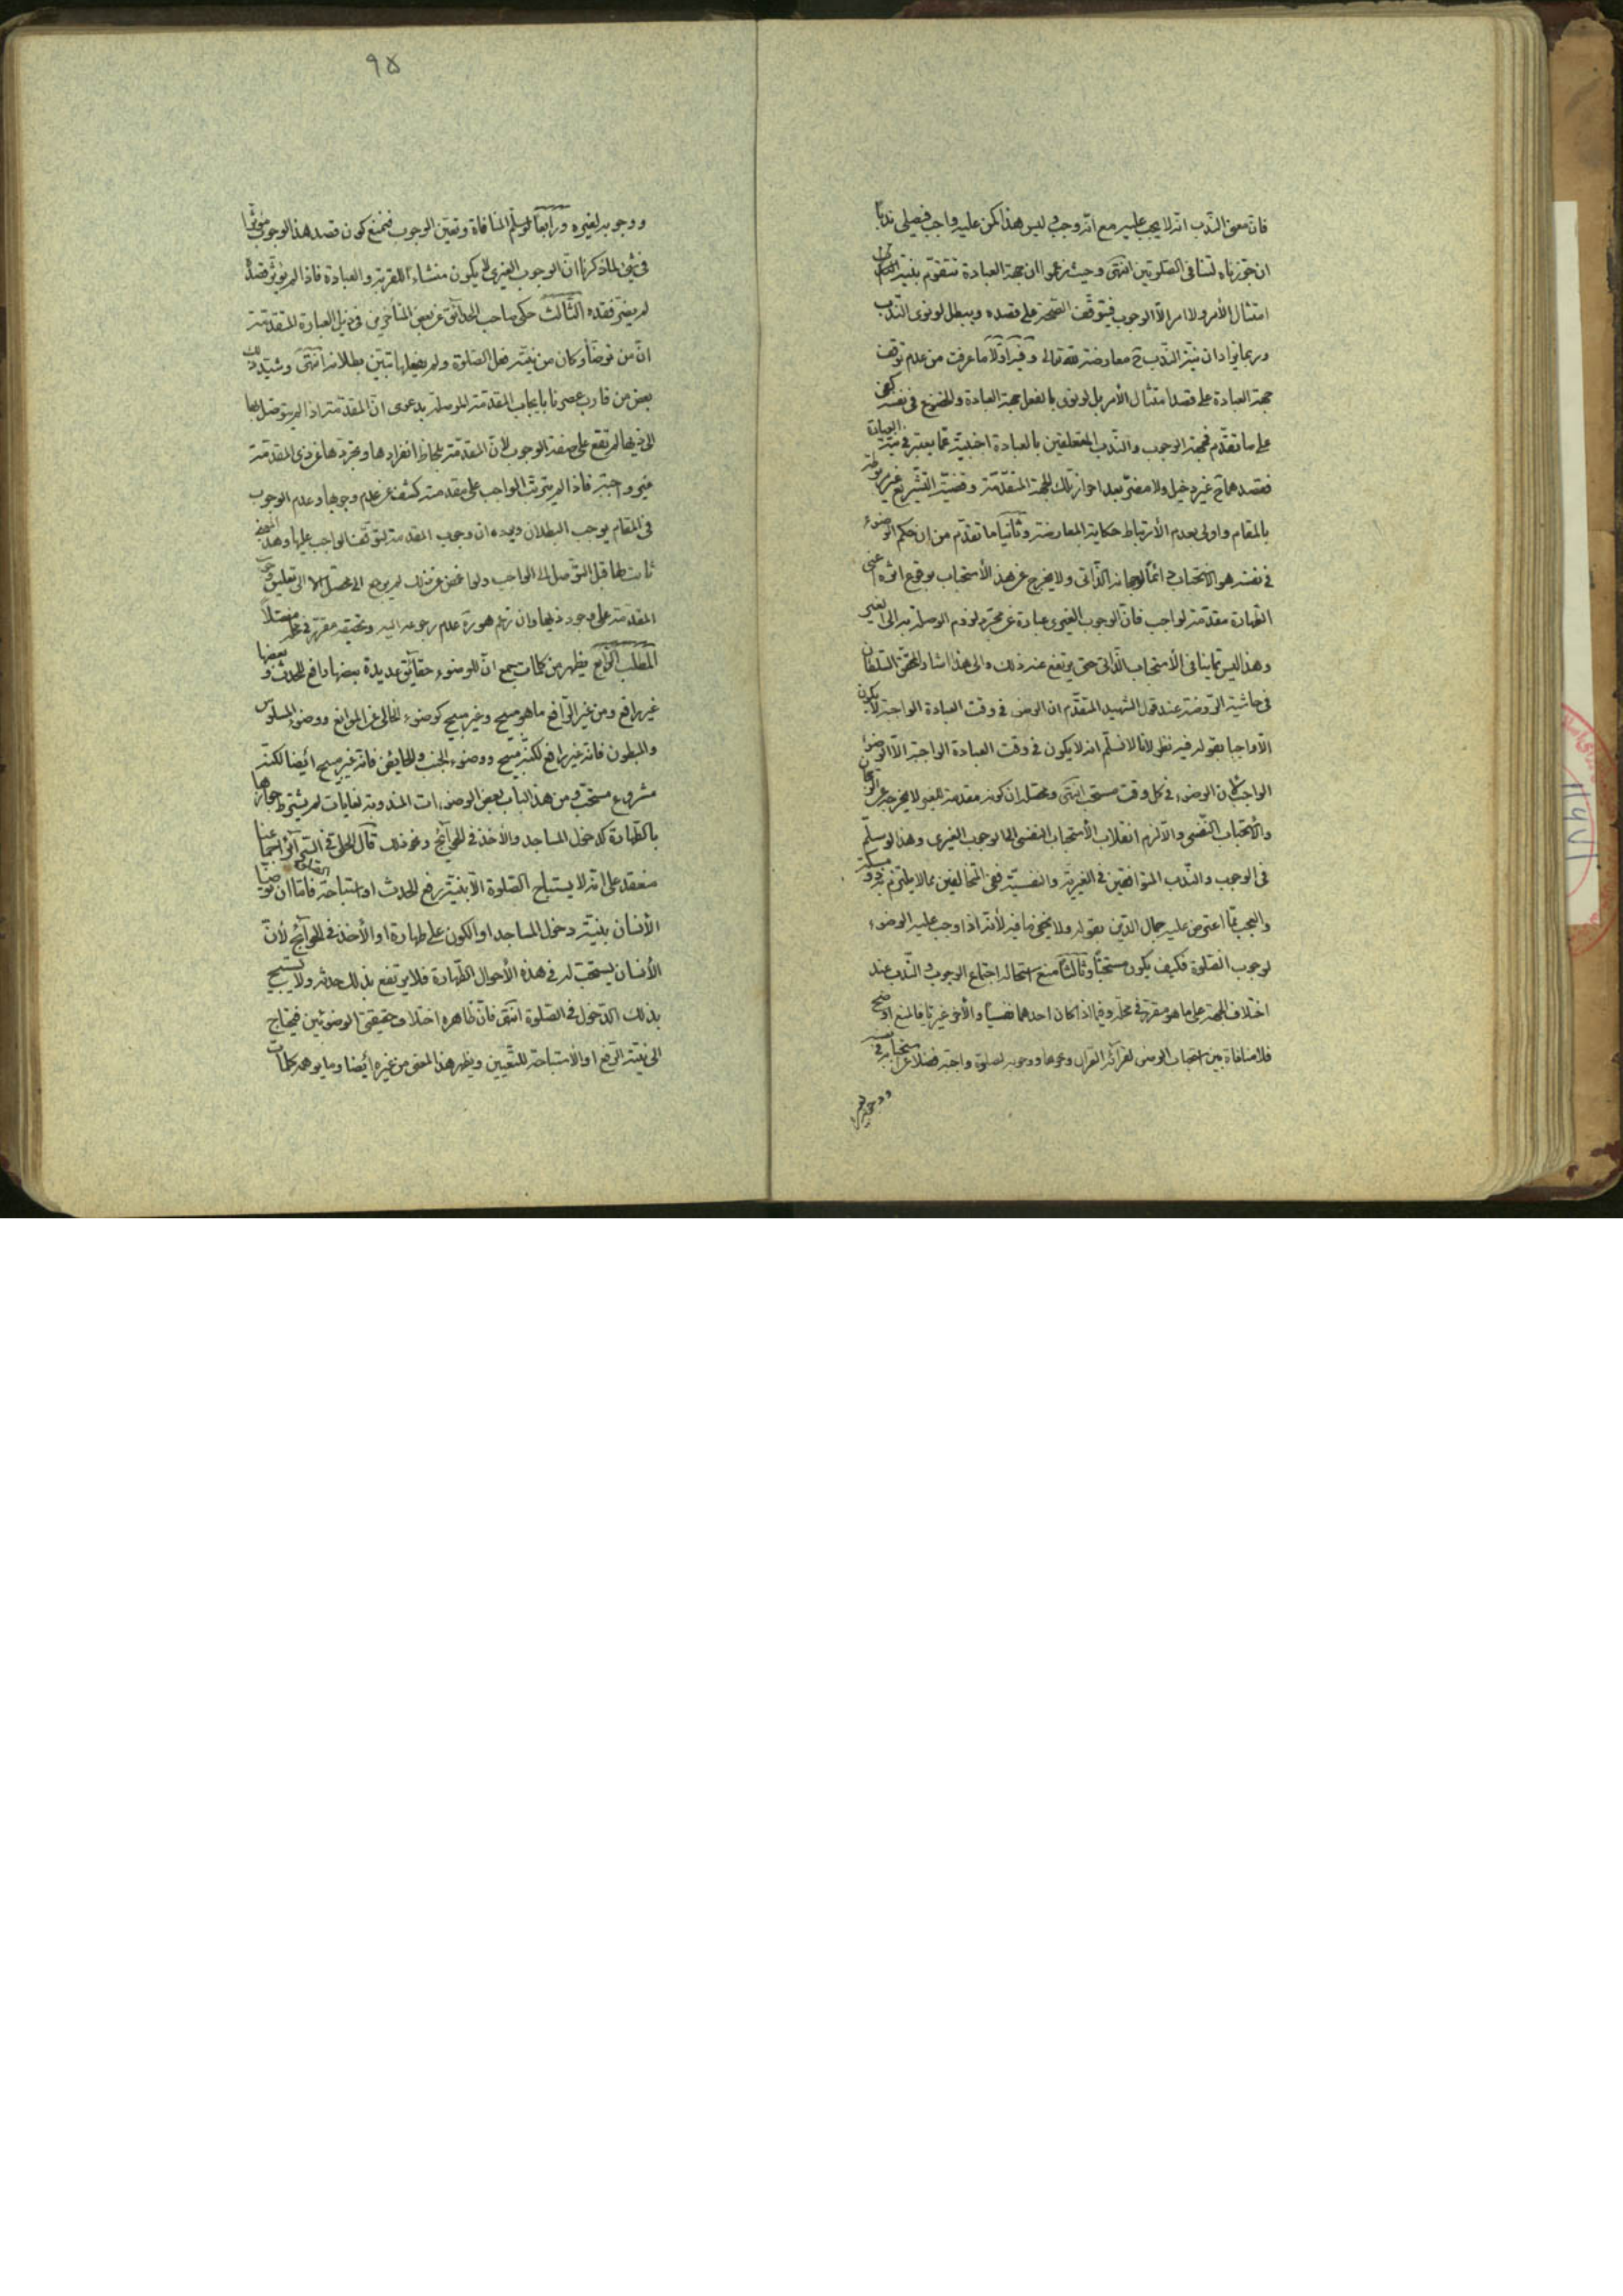 فان معنى الندب انه لا يجب عليه مع انه وجوب ليس هذا كمن عليه واجب فيصلى ندبا
ان جوزناه لتنافى الصلوتين انتهى وحيث زعموا ان جهة العبادة تتقوم بنية
امتثال الأمر ولا امر الا الوجوب فيتوقف الصحة على قصده ويبطل لو نوى الندب
وربما يزاد ان نية الندب ح معارضة لله تعالى وفيه اولا ما عرفت من عدم توقف
جهة العبادة على قصد امتثال الأمر بل لو نوى بالفعل جهة العبادة والخضوع فى نفسه كفى
على ما تقدم فجهة الوجوب والندب المتعلقين بالعبادة اجنبية عما يعتبر فى نية العبادة
فقصدهما ح غير دخيل ولا مضر بعد احراز تلك الجهة المتقدمة وقضية التشريع غير مربوطة
بالمقام واولى بعدم الأرتباط حكاية المعارضة وثانيا ما تقدم من ان حكم الوضوء
فى نفسه هو الاستحباب دائما لرجحانه الذاتى ولا يخرج عن هذا الأستحباب بوقوع اثره اعنى
الطهارة مقدمة لواجب فان الوجوب الغيرى عبارة عن مجرد لزوم الوصلة به الى الغير
وهذا ليس مما ينافى الأستحباب الذاتى حتى يرتفع عند ذلك والى هذا اشار المحقق السلطان
فى حاشية الروضة عند قول الشهيد المتقدم ان الوضوء فى وقت العبادة الواجبة لا يكون
الا واجبا بقوله فيه نظر لانا لا نسلم انه لا يكون فى وقت العبادة الواجبة الا الوضوء
الواجب لان الوضوء فى كل وقت مستحب انتهى ومحصله ان كونه مقدمة للغير لا يخرجه عن الرجحان
والأستحباب النفسى والا لزم انقلاب الأستحباب النفسى الى الوجوب الغيرى وهذا لو سلم
فى الوجوب والندب المتوافقين فى الغيرية والنفسية ففى المتخالفين مما لا يلتزم به ذو مسكة
والعجب مما اعترض عليه جمال الدين بقوله ولا يخفى ما فيه لأنه اذا وجب عليه الوضوء
لوجوب الصلوة فكيف يكون مستحبا وثالثا منع استحالة اجتماع الوجوب والندب عند
اختلاف الجهة على ما هو مقرر فى محله وفيما اذا كان احدهما نفسيا والأخر غيريا فالمنع اوضح
فلا منافاة بين استحباب الوضوء لقرائة القران ونحوها ووجوبه لصلوة واجبة فضلا عن استحبابه فى نفسه
٩٥
ووجوبه لغيره ورابعا لو سلم المنافاة وتعين الوجوب فيمنع كون قصد هذا الوجوب مؤثرا
فى شئ لما ذكرنا ان الوجوب الغيرى لا يكون منشاء للقربة والعبادة فاذا لم يؤثر قصده
لم يضر فقده الثالث حكى صاحب الحدائق عن بعض المتأخرين فى ذيل العبارة المتقدمة
ان من توضأ وكان من نيته فعل الصلوة ولم يفعلها تبين بطلانه انتهى وشيد ذلك
بعض من قارب عصرنا بايجاب المقدمة الموصلة بدعوى ان المقدمة اذا لم يتوصل بها
الى ذيها لم تقع على صفة الوجوب لان المقدمة بلحاظ انفرادها وتجردها عن ذى المقدمة
غير واجبة فاذا لم يترتب الواجب على مقدمته كشف عن عدم وجوبها وعدم الوجوب
فى المقام يوجب البطلان ويرده ان وجوب المقدمة لتوقف الواجب عليها وهذا المعنى
ثابت لها قبل التوصل الى الواجب ولو اغمض عن ذلك لم يرجع الى محصل الا الى تعليق وجوب
المقدمة على وجود ذيها وان زعم هو ره عدم رجوعه اليه وتحقيقه مقرر فى محله مفصلا
المطلب الرابع يظهر من كلمات جمع ان للوضوء حقايق عديدة بعضها رافع للحدث وبعضها
غير رافع ومن غير الرافع ما هو مبيح وغير مبيح كوضوء الخالى عن الموانع ووضوء المسلوس
والمبطون فانه غير رافع لكنه مبيح ووضوء الجنب والحايض فانه غير مبيح ايضا لكنه
مشروع مستحب ومن هذا الباب بعض الوضوءات المندوبة لغايات لم يشترط جوازها
بالطهارة كدخول المساجد والأخذ فى الحوائج ونحو ذلك قال الحلى فى السرائر اجماعنا
منعقد على انه لا يستباح الصلوة الا بنية رفع الحدث او استباحة الصلوة فاما ان توضأ
الأنسان بنية دخول المساجد او الكون على طهارة او الأخذ فى الحوائج لأن
الأنسان يستحب له فى هذه الأحوال الطهارة فلا يرتفع بذلك حدثه ولا يستبيح
بذلك الدخول فى الصلوة انتهى فان ظاهره اختلاف حقيقتى الوضوئين فيحتاج
الى نية الرفع او الاستباحة للتعيين ويظهر هذا المعنى من غيره ايضا وما يوهمه كلمات